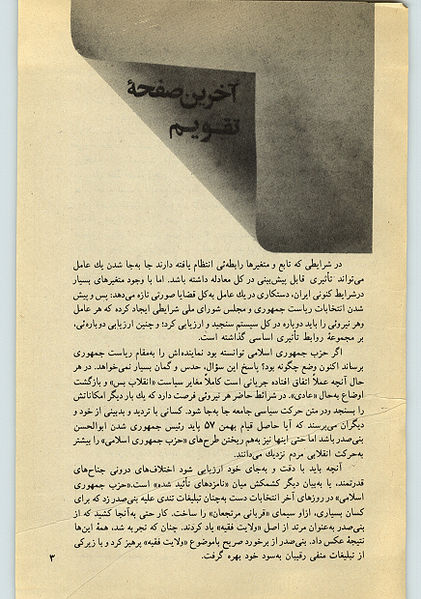 آخرین صفحهٔ
تقویم
در شرایطی که تابع و متغیرها رابطه‌ئی انتظام یافته دارند جا به‌جا شدن یك عامل
می‌تواند تأثیری قابل پیش‌بینی در کل معادله داشته باشد. اما با وجود متغیرهای بسیار
درشرایط کنونی ایران، دستکاری در یك عامل به‌کل قضایا صورتی تازه می‌دهد: پس و پیش
شدن انتخابات ریاست جمهوری و مجلس شورای ملی شرایطی ایجاد کرده که هر عامل
وهر نیروئی را باید دوباره در کل سیستم سنجید و ارزیابی کرد؛ و چنین ارزیابی دوباره‌ئی،
بر مجموعهٔ روابط تأثیری اساسی گذاشته است.
اگر حزب جمهوری اسلامی توانسته بود نماینده‌اش را به‌مقام ریاست جمهوری
برساند اکنون وضع چگونه بود؟ پاسخ این سؤال، حدس و گمان بسیار نمی‌خواهد. در هر
حال آنچه عملاً اتفاق افتاده جریانی است کاملاً مغایر سیاست «انقلاب بس» و بازگشت
اوضاع به‌حال «عادی». در شرائط حاضر هر نیروئی فرصت دارد که یك بار دیگر امکاناتش
را بسنجد ودر متن حرکت سیاسی جامعه جا به‌جا شود. کسانی با تردید و بدبینی از خود و
دیگران می‌پرسند که آیا حاصل قیام بهمن ۵۷ باید رئیس جمهوری شدن ابوالحسن
بنی‌صدر باشد اما حتی اینها نیز به‌هم ریختن طرح‌های «حزب جمهوری اسلامی» را بیشتر
به‌حرکت انقلابی مردم نزدیك می‌دانند.
آنچه باید با دقت و به‌جای خود ارزیابی شود اختلاف‌های درونی جناح‌های
قدرتمند، یا به‌بیان دیگر کشمکش میان «نامزدهای تأئید شده» است.«حزب جمهوری
اسلامی» در روزهای آخر انتخابات دست به‌چنان تبلیغات تندی علیه بنی‌صدر زد که برای
کسان بسیاری، ازاو سیمای «قربانی مرتجعان» را ساخت. کار حتی به‌آنجا کشید که از
بنی‌صدر به‌عنوان مرتد از اصل «ولایت فقیه» یاد کردند. چنان که تجربه شد، همهٔ این‌ها
نتیجهٔ عکس داد. بنی‌صدر از برخورد صریح باموضوع «ولایت فقیه» پرهیز کرد و با زیرکی
از تبلیغات منفی رقیبان به‌سود خود بهره گرفت.
۳